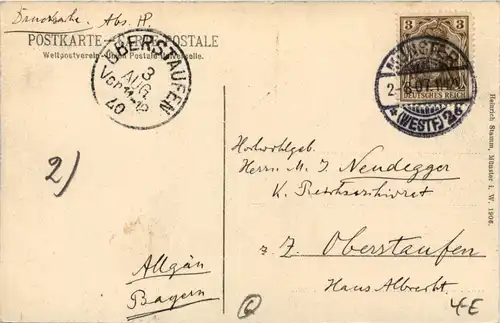 Drucksache. Abs. H.
POSTKARTE - CARTE POSTALE
Weltpostverein - Union Postale Universelle.
OBERSTAUFEN
3
AUG.
Vor 11-12
40
3
DEUTSCHES REICH
MÜNSTER
2-8.07. 
* (WESTF.) 2c
Heinrich Stamm, Münster i. W. 1906.
2)
Hochwohlgeb.
Herrn M. J. Neudegger
K. Reichsarchivrat
z. Z. Oberstaufen
Haus Albrecht.
Allgäu
Bayern
4E